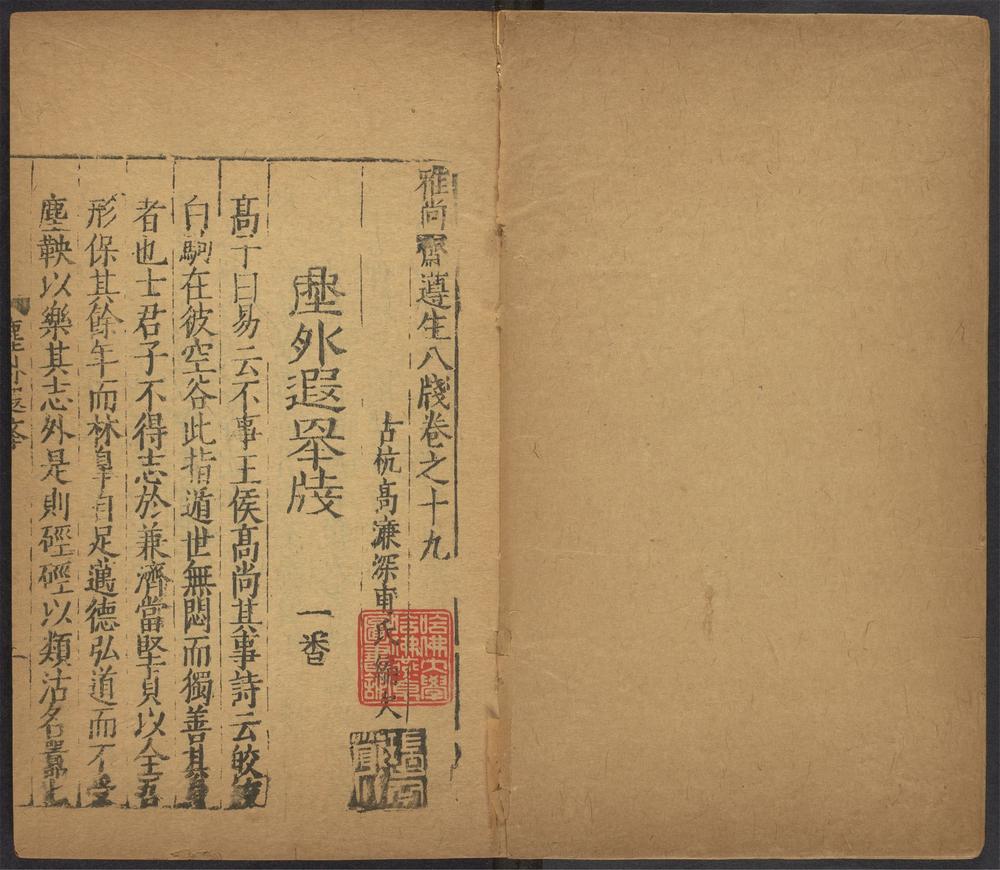 雅尚齋遵生八牋卷之十九
古杭高濂深甫氏編次
塵外遐舉牋
一番
高子曰易云不事王侯高尚其事詩云皎皎
白駒在彼空谷此指遁世無悶而獨善其身
者也士君子不得志於兼濟當堅貞以全吾
形保其餘年而林皐自足邁德弘道而不受
塵鞅以樂其志外是則硜硜以類沽名
哈佛大學
圖書